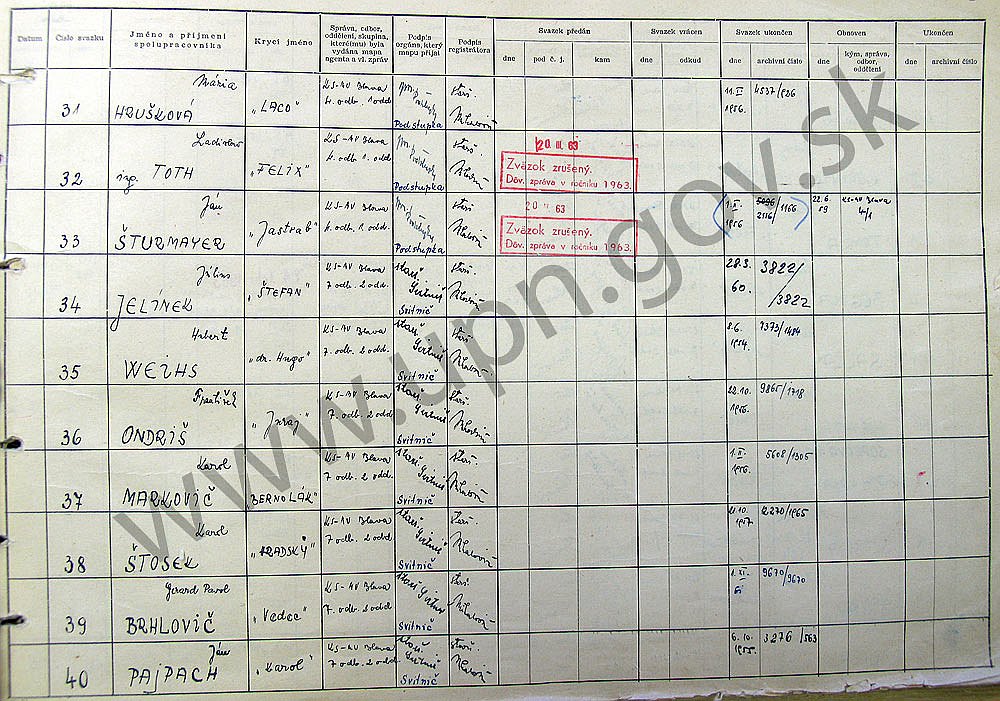 Datum
Číslo svazku
Jméno a příjmení spolupracovníka
Krycí jméno
Správa, odbor, oddělení, skupina, které(mu) byla vydána mapa agenta a vl. zpráv
Podpis orgána, který mapu přijal
Podpis registrátora
Svazek předán
dne
pod č. j.
kam
Svazek vrácen
dne
odkud
Svazek ukončen
dne
archivní číslo
Obnoven
dne
kým, správa, odbor, oddělení
Ukončen
dne
archivní číslo
Mária
31 HRUŠKOVÁ „LACO“ KS-AV Blava
4. odb. 1 odd.
Podstupka
11. II. 1956. 4537/936
Ladislav
32 ing. TOTH „FELIX“ KS-AV Blava
4. odb. 1. odd.
Podstupka
20 III. 63
Zväzok zrušený.
Dôv. zpráva v ročníku 1963.
Ján
33 ŠTURMAYER „Jastrab“ KS-AV Blava
4. odb. 1. odd.
Podstupka
20 63
Zväzok zrušený.
Dôv. zpráva v ročníku 1963.
1956 2116/1166 22.6. 59 KS-AV Blava
Július
34 JELÍNEK „ŠTEFAN“ KS-AV Blava
7. odb. 2 odd.
Svitnič
28.3. 60. 3822/3822
Hubert
35 WEIHS „dr. Hugo“ KS-AV Blava
7. odb. 2 odd.
Svitnič
8.6. 1954. 7373/1484
František
36 ONDRIŠ „Juraj“ KS-AV Blava
7. odb. 2 odd.
Svitnič
22.10. 1956. 9865/1718
Karol
37 MARKOVIČ „BERNOLÁK“ KS-AV Blava
7. odb. 2 odd.
Svitnič
1. II. 1956. 5608/1305
Karol
38 ŠTOSEK „HRADSKÝ“ KS-AV Blava
7. odb. 2 odd.
Svitnič
21.10. 1957. 2270/1965
Gerard Pavol
39 BRHLOVIČ „Vedec“ KS-AV Blava
7. odb. 2 odd.
Svitnič
1. XI. 61 9670/9670
Ján
40 PAJPACH „Karol“ KS-AV Blava
7. odb. 2 odd.
Svitnič
6.10. 1955. 3276/563
www.upn.gov.sk